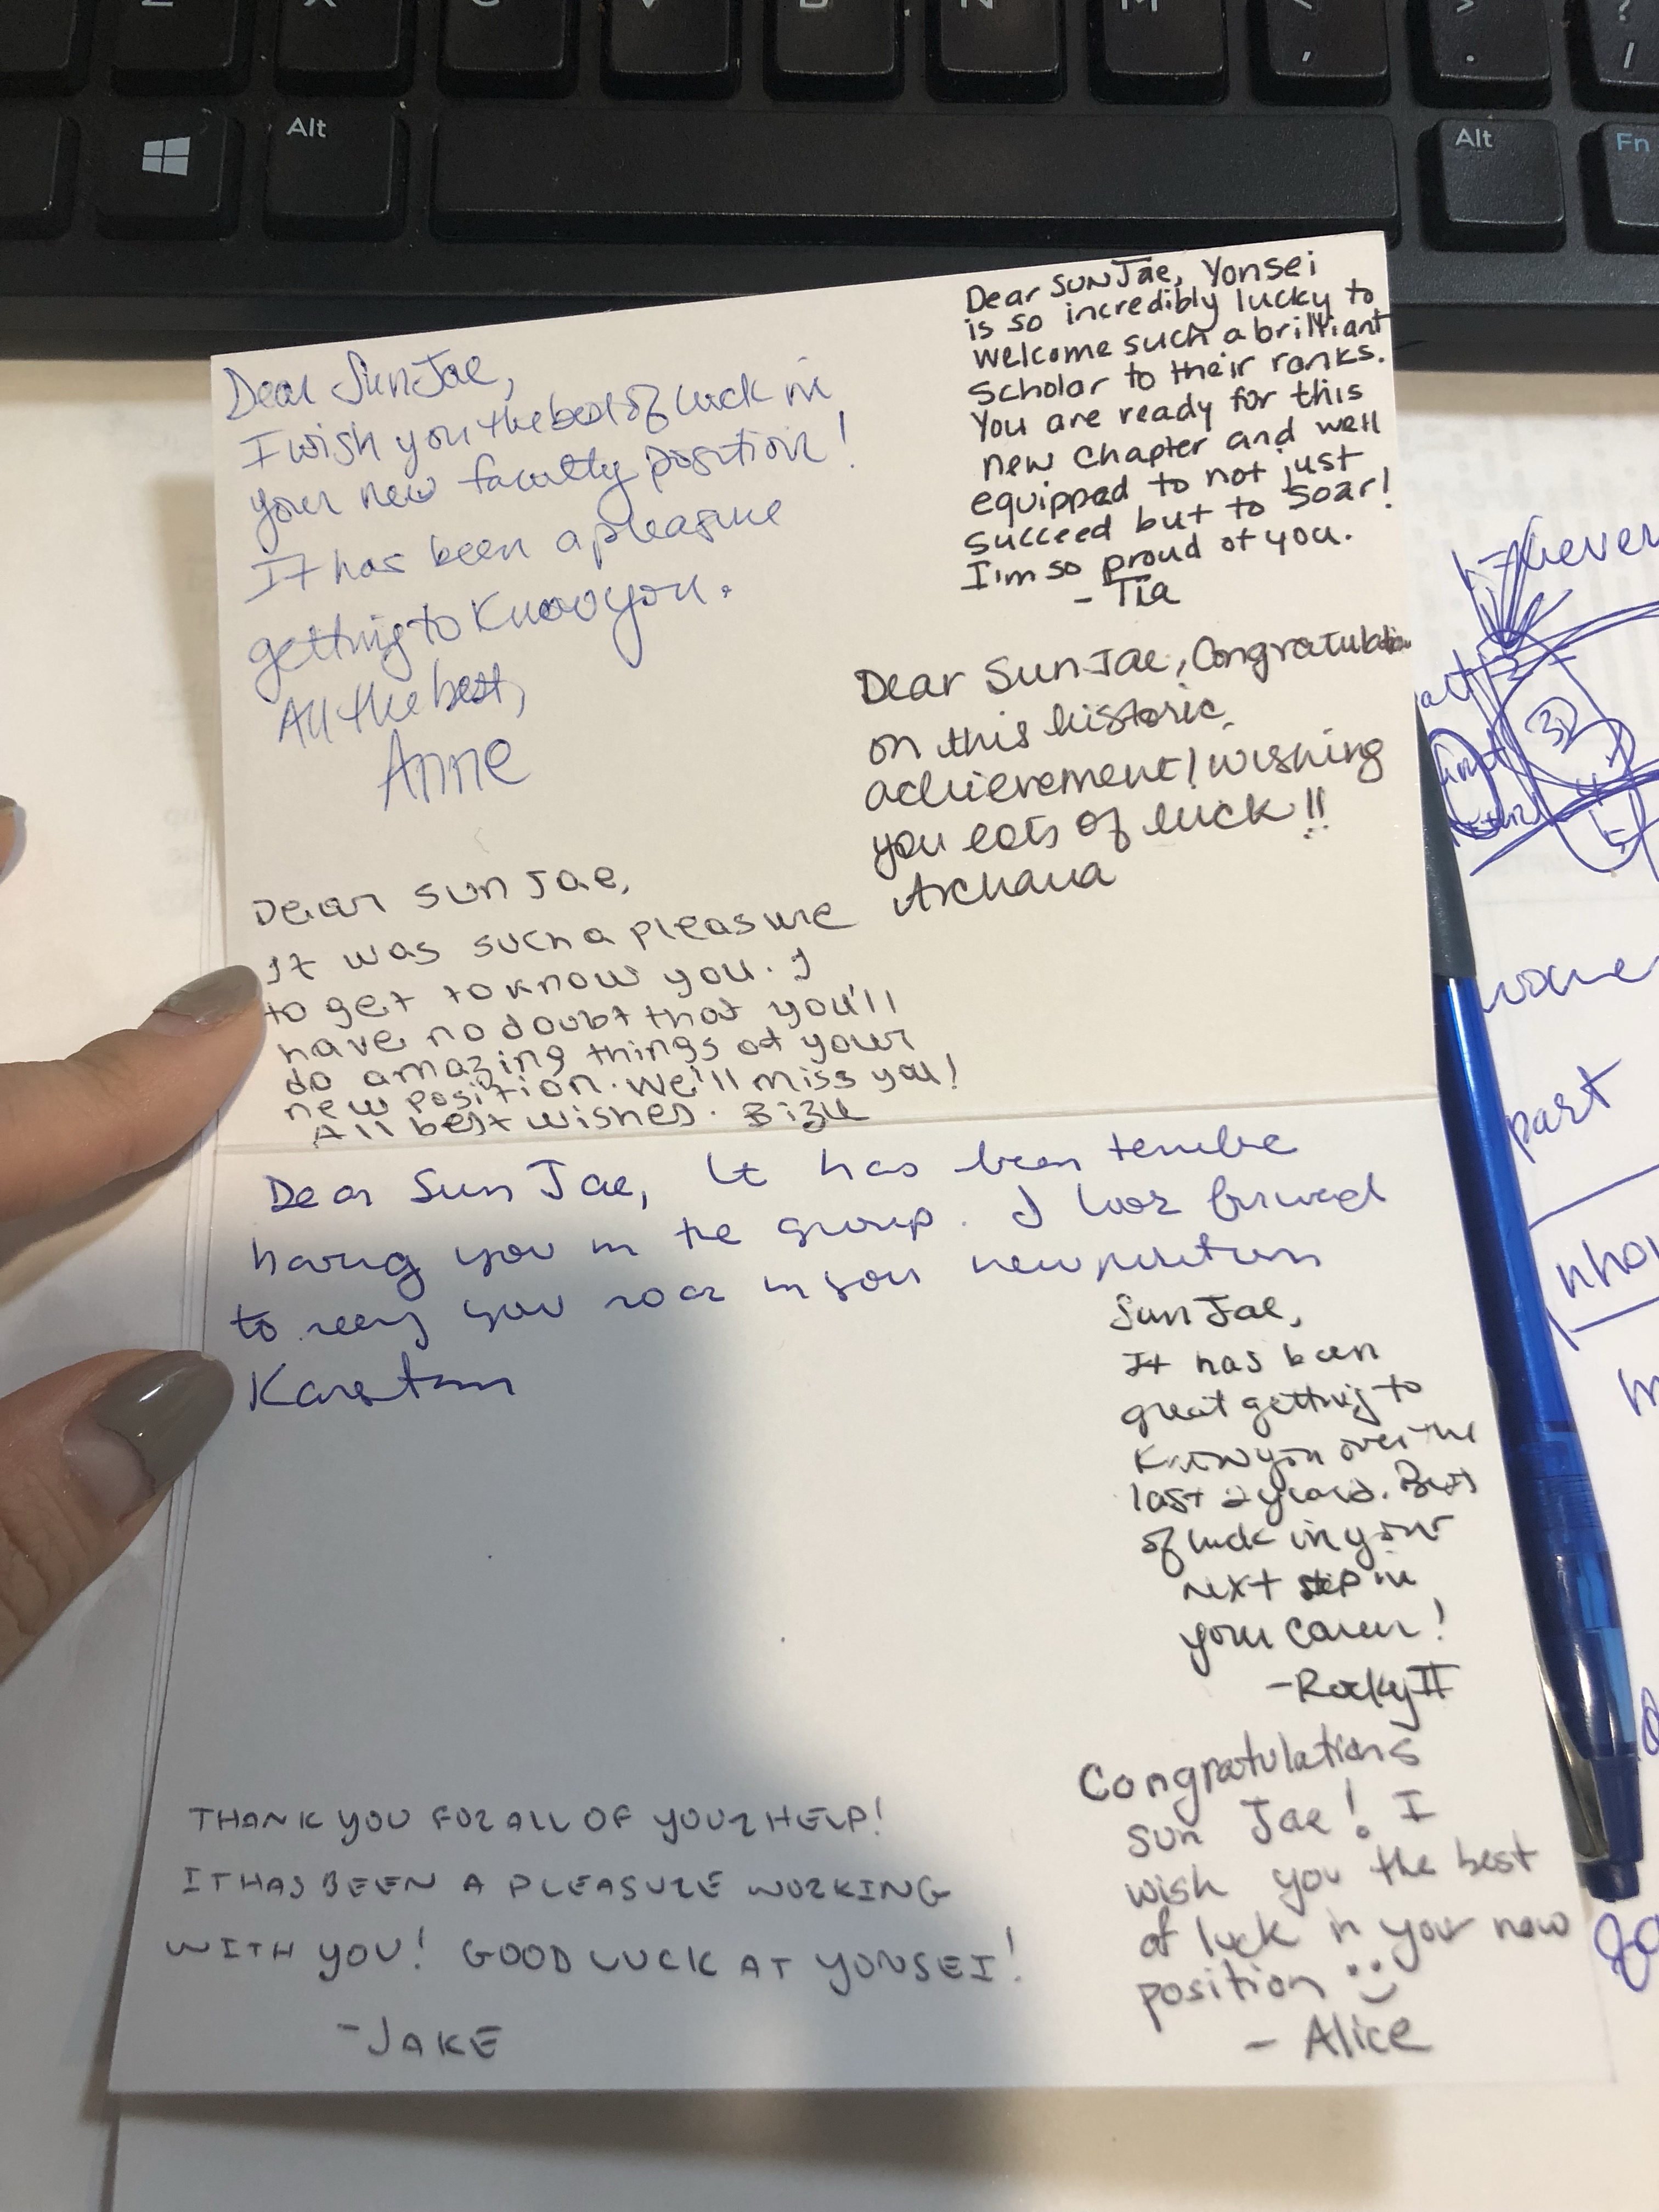 Z X C V B N M < , > . ? /
Alt
Alt
Fn
Dear SunJae,
I wish you the best of luck in
your new faculty position!
It has been a pleasure
getting to know you.
All the best,
Anne
Dear SunJae, Yonsei
is so incredibly lucky to
welcome such a brilliant
scholar to their ranks.
You are ready for this
new chapter and well
equipped to not just
succeed but to soar!
I'm so proud of you.
- Tia
Dear Sun Jae, Congratulations
on this historic
achievement! wishing
you lots of luck!!
Archana
Dear Sun Jae,
It was such a pleasure
to get to know you. I
have no doubt that you'll
do amazing things at your
new position. We'll miss you!
All best wishes.
Dear Sun Jae, It has been terrific
having you in the group. I look forward
to seeing you soar in your new position
Sun Jae,
It has been
great getting to
know you over the
last 2 years. Best
of luck in your
next step in
your career!
-Rocky II
THANK YOU FOR ALL OF YOUR HELP!
IT HAS BEEN A PLEASURE WORKING
WITH YOU! GOOD LUCK AT YONSEI!
-JAKE
Congratulations
Sun Jae! I
wish you the best
of luck in your new
position :)
- Alice
3D
part